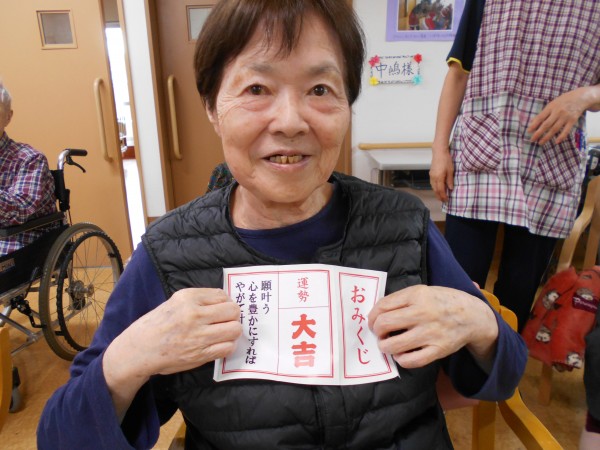 中嶋様
おみくじ
運勢
大吉
願叶う
心を豊かにすれば
やがてす